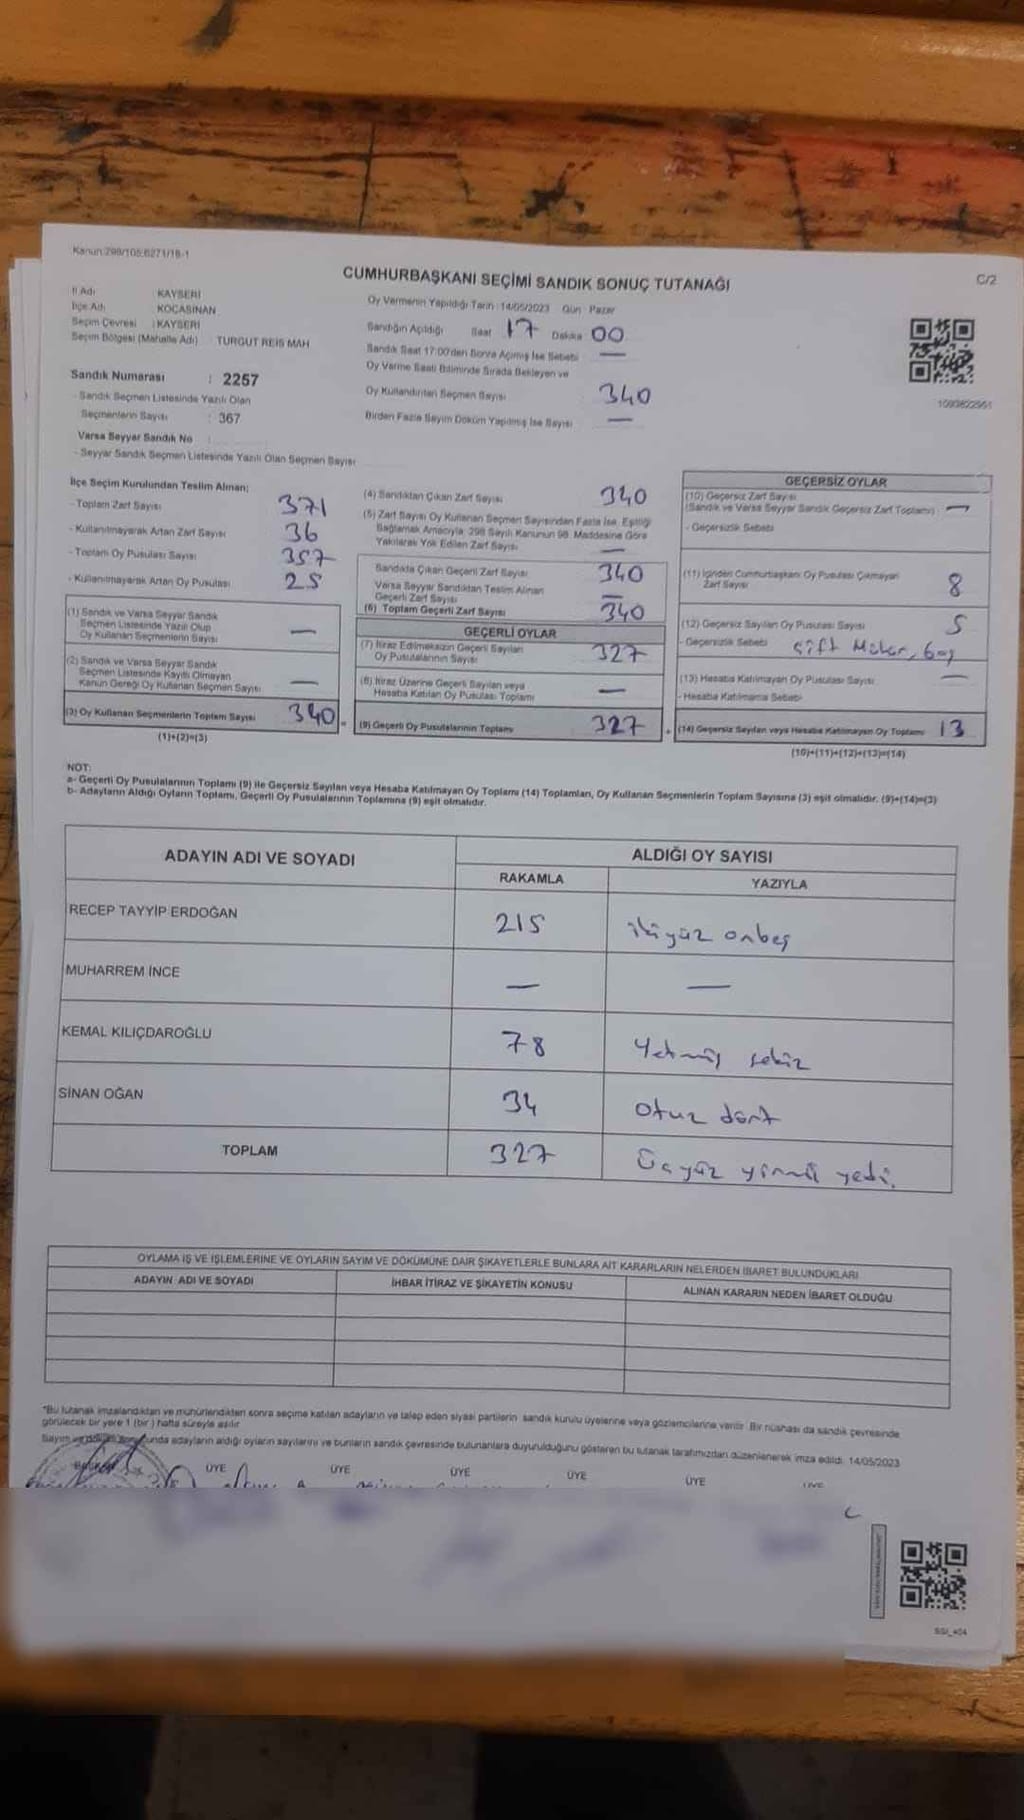 Kanun:298/105;6271/18-1
CUMHURBAŞKANI SEÇİMİ SANDIK SONUÇ TUTANAĞI
C/2
İl Adı KAYSERİ
İlçe Adı KOCASİNAN
Seçim Çevresi : KAYSERİ
Seçim Bölgesi (Mahalle Adı) TURGUT REİS MAH
Oy Vermenin Yapıldığı Tarih :14/05/2023 Gün : Pazar
Sandığın Açıldığı Saat 17 Dakika 00
Sandık Saat 17:00'den Sonra Açılmış İse Sebebi —
Oy Verme Saati Bitiminde Sırada Bekleyen ve
Oy Kullandırılan Seçmen Sayısı 340
Birden Fazla Sayım Döküm Yapılmış İse Sayısı —
1093822951
Sandık Numarası : 2257
- Sandık Seçmen Listesinde Yazılı Olan
Seçmenlerin Sayısı : 367
Varsa Seyyar Sandık No :
- Seyyar Sandık Seçmen Listesinde Yazılı Olan Seçmen Sayısı
İlçe Seçim Kurulundan Teslim Alınan;
- Toplam Zarf Sayısı 371
- Kullanılmayarak Artan Zarf Sayısı 36
- Toplam Oy Pusulası Sayısı 357
- Kullanılmayarak Artan Oy Pusulası 25
(1) Sandık ve Varsa Seyyar Sandık
Seçmen Listesinde Yazılı Olup
Oy Kullanan Seçmenlerin Sayısı —
(2) Sandık ve Varsa Seyyar Sandık
Seçmen Listesinde Kayıtlı Olmayan
Kanun Gereği Oy Kullanan Seçmen Sayısı —
(3) Oy Kullanan Seçmenlerin Toplam Sayısı 340 =
(1)+(2)=(3)
(4) Sandıktan Çıkan Zarf Sayısı 340
(5) Zarf Sayısı Oy Kullanan Seçmen Sayısından Fazla İse, Eşitliği
Bağlamak Amacıyla, 298 Sayılı Kanunun 98. Maddesine Göre
Yakılarak Yok Edilen Zarf Sayısı —
Sandıkta Çıkan Geçerli Zarf Sayısı 340
Varsa Seyyar Sandıktan Teslim Alınan
Geçerli Zarf Sayısı —
(6) Toplam Geçerli Zarf Sayısı 340
GEÇERLİ OYLAR
(7) İtiraz Edilmeksizin Geçerli Sayılan
Oy Pusulalarının Sayısı 327
(8) İtiraz Üzerine Geçerli Sayılan veya
Hesaba Katılan Oy Pusulası Toplamı —
(9) Geçerli Oy Pusulalarının Toplamı 327 +
GEÇERSİZ OYLAR
(10) Geçersiz Zarf Sayısı
(Sandık ve Varsa Seyyar Sandık Geçersiz Zarf Toplamı) —
- Geçersizlik Sebebi
(11) İçinden Cumhurbaşkanı Oy Pusulası Çıkmayan
Zarf Sayısı 8
(12) Geçersiz Sayılan Oy Pusulası Sayısı 5
- Geçersizlik Sebebi çift Mühür, boş
(13) Hesaba Katılmayan Oy Pusulası Sayısı —
- Hesaba Katılmama Sebebi
(14) Geçersiz Sayılan veya Hesaba Katılmayan Oy Toplamı 13
(10)+(11)+(12)+(13)=(14)
NOT:
a- Geçerli Oy Pusulalarının Toplamı (9) ile Geçersiz Sayılan veya Hesaba Katılmayan Oy Toplamı (14) Toplamları, Oy Kullanan Seçmenlerin Toplam Sayısına (3) eşit olmalıdır. (9)+(14)=(3)
b- Adayların Aldığı Oyların Toplamı, Geçerli Oy Pusulalarının Toplamına (9) eşit olmalıdır.
ADAYIN ADI VE SOYADI ALDIĞI OY SAYISI
RAKAMLA YAZIYLA
RECEP TAYYİP ERDOĞAN 215 ikiyüz onbeş
MUHARREM İNCE — —
KEMAL KILIÇDAROĞLU 78 Yetmiş sekiz
SİNAN OĞAN 34 otuz dört
TOPLAM 327 Üçyüz yirmi yedi.
OYLAMA İŞ VE İŞLEMLERİNE VE OYLARIN SAYIM VE DÖKÜMÜNE DAİR ŞİKAYETLERLE BUNLARA AİT KARARLARIN NELERDEN İBARET BULUNDUKLARI
ADAYIN ADI VE SOYADI İHBAR İTİRAZ VE ŞİKAYETİN KONUSU ALINAN KARARIN NEDEN İBARET OLDUĞU
*Bu tutanak imzalandıktan ve mühürlendikten sonra seçime katılan adayların ve talep eden siyasi partilerin sandık kurulu üyelerine veya gözlemcilerine verilir. Bir nüshası da sandık çevresinde
görülecek bir yere 1 (bir) hafta süreyle asılır.
Sayım ve döküm sonunda adayların aldığı oyların sayılarını ve bunların sandık çevresinde bulunanlara duyurulduğunu gösteren bu tutanak tarafımızdan düzenlenerek imza edildi. 14/05/2023
BAŞKAN ÜYE ÜYE ÜYE ÜYE ÜYE ÜYE